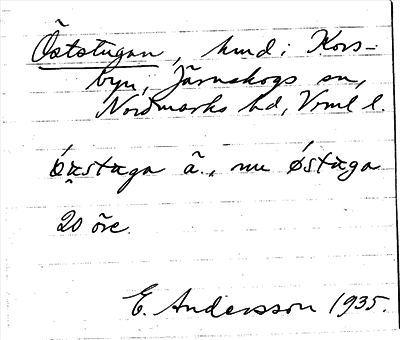 Öststugan, hmd i Kors-
byn, Järnskogs sn,
Nordmarks hd, Vrml l.
östuga ä., nu östuga
20 öre.
E. Andersson 1935.